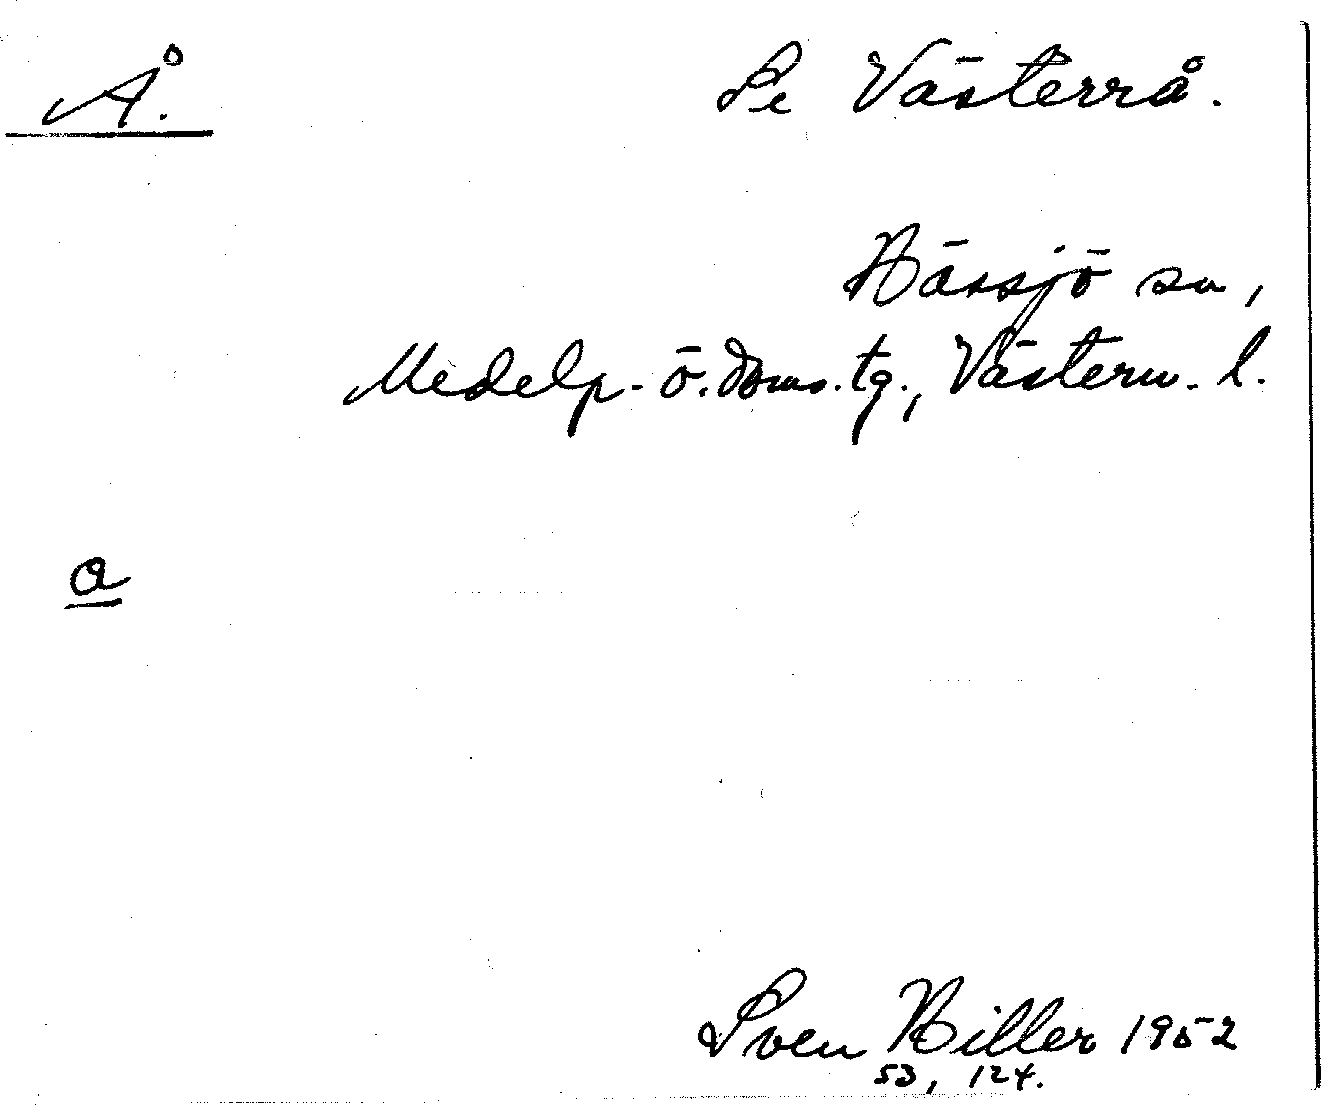 Å. Se Västerrå.
Hässjö sn,
Medelp. ö. doms.tg., Västern. l.
a
Sven Hiller 1952
53, 124.